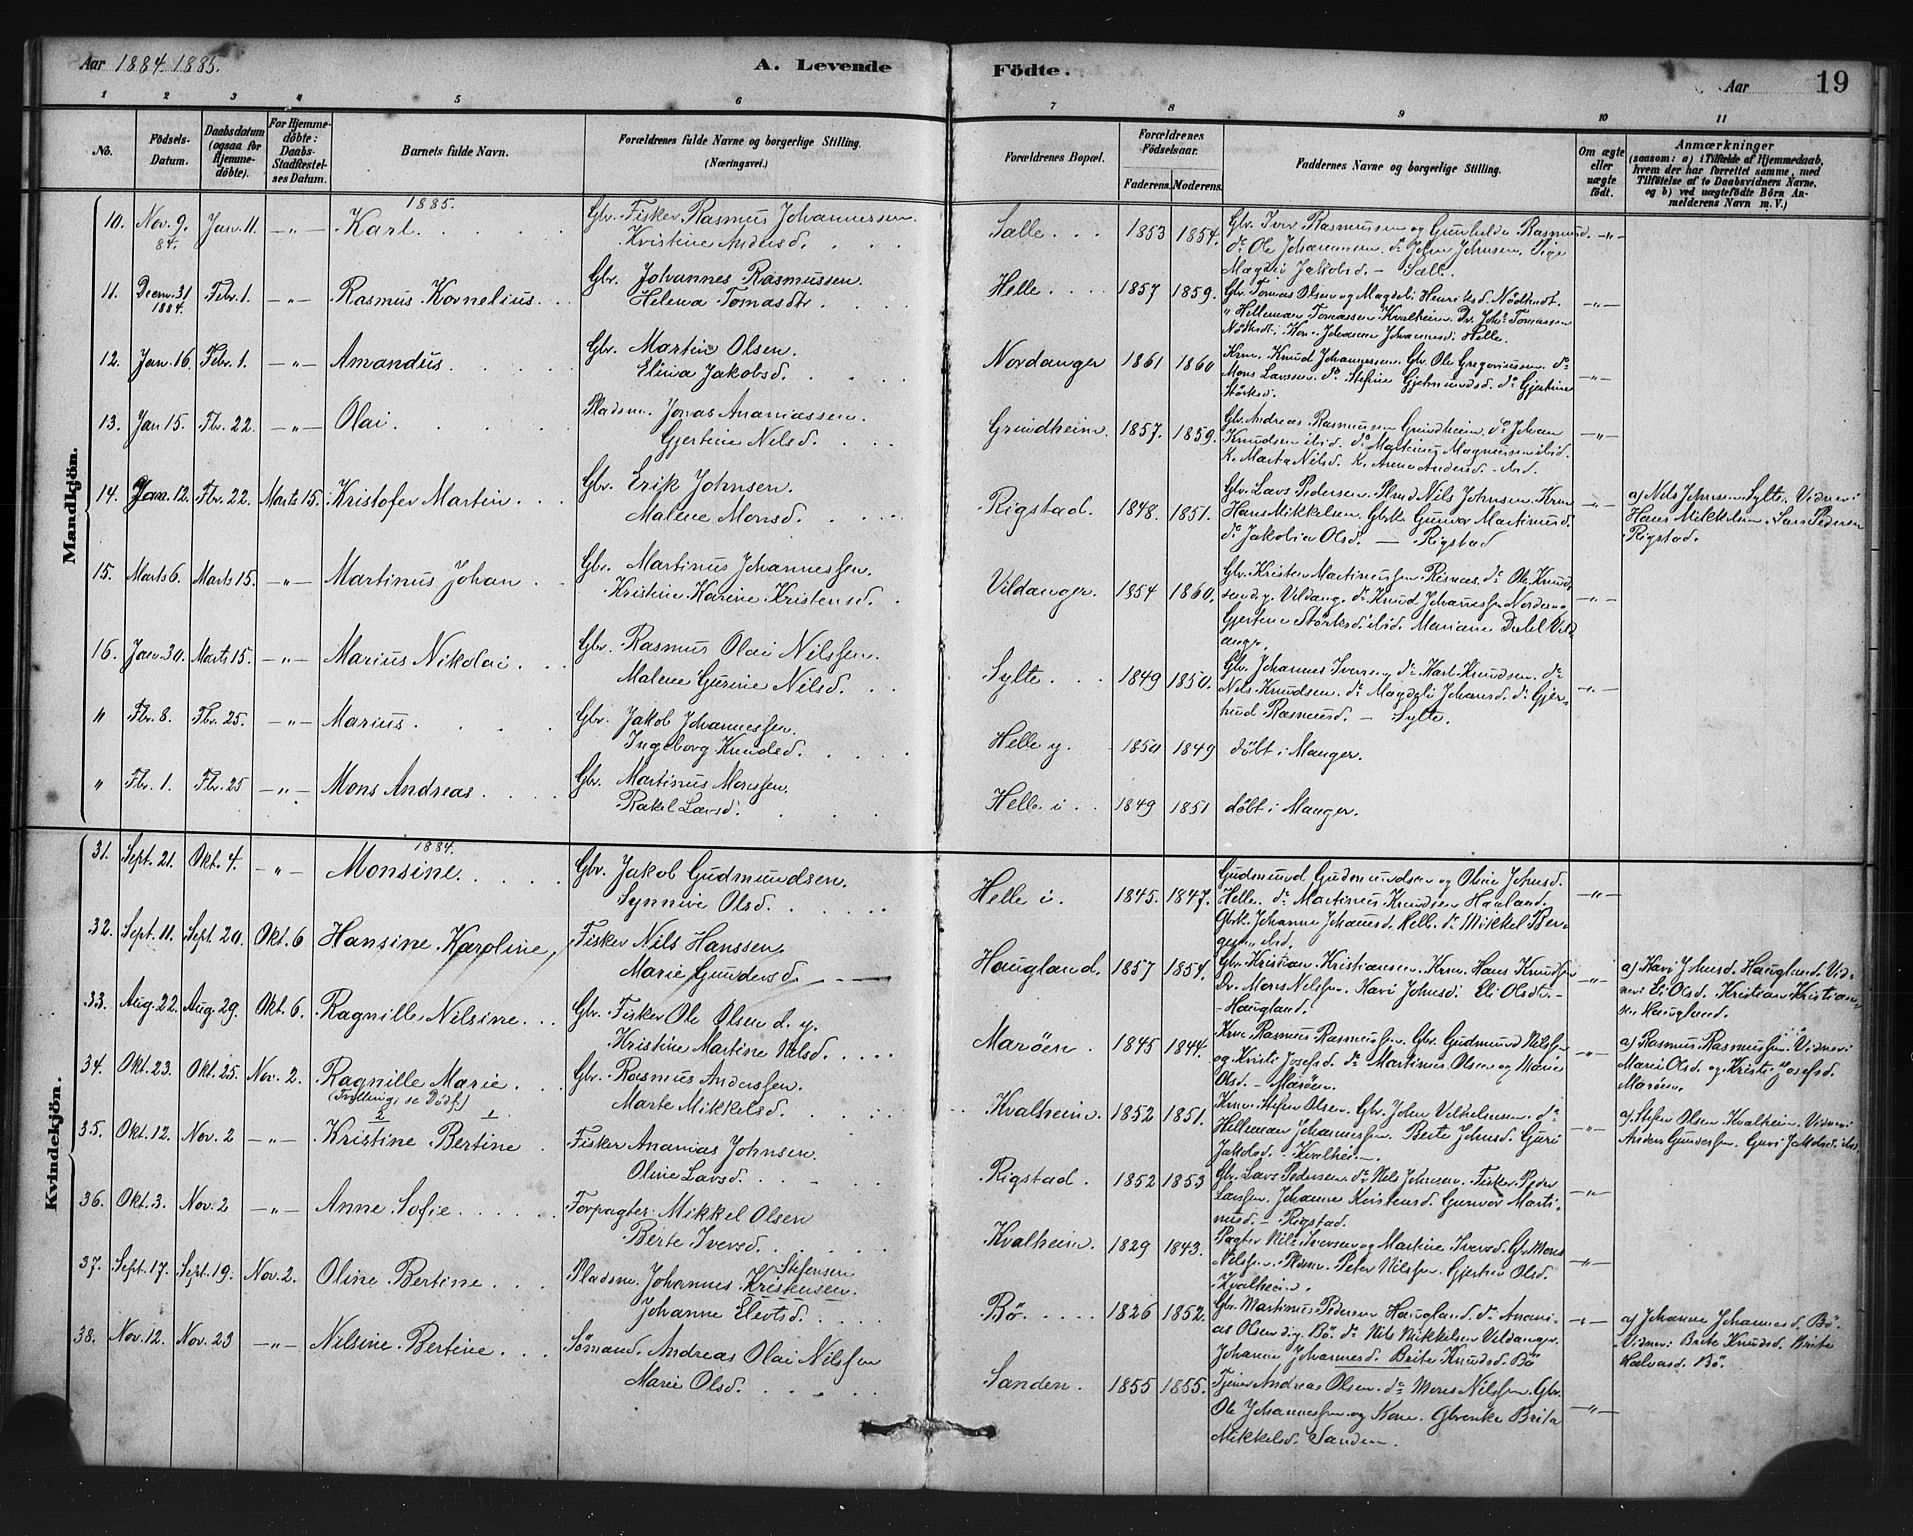 Aar 1884.1885.
A. Levende Födte.
Aar
19
1 2 3 4 5 6 7 8 9 10 11
No.
Födsels-Datum.
Daabsdatum (ogsaa for Hjemme-döbte).
For Hjemme-döbte: Daabs-Stadfæstel-ses Datum.
Barnets fulde Navn.
Forældrenes fulde Navne og borgerlige Stilling.
(Næringsvei.)
Forældrenes Bopæl.
Forældrenes Födselsaar.
Faderens. Moderens.
Faddernes Navne og borgerlige Stilling.
Om ægte eller uægte födt.
Anmærkninger
(saasom: a) i Tilfælde af Hjemmedaab, hvem der har forrettet samme, med Tilföielse af to Daabsvidners Navne, og b) ved uægtefödte Börn An-melderens Navn m. V.)
Mandkjön.
1885.
10. Nov. 9. 84. Jan. 11. —„— Karl. Gbr. Fisker Rasmus Johannessen.
Kristine Andersd. Sælle. 1853 1854.
Gbr. Iver Rasmussen og Gunhilde Rasmusd.
do Ole Johannessen. do John Johnsen. Pige
Magdli Jakobsd. — Sælle. —„—
11. Decm. 31 1884. Febr. 1. —„— Rasmus Kornelius. Gbr. Johannes Rasmussen
Helena Tomasdtr. Helle. 1857 1859.
Gbr. Tomas Olsen og Magdeli Henriksd. Nödtvedt.
„ Helleman Tomassen Kvalheim. Dr. Johs Tomassen
Nödtvedt. Kone Johanne Johannesd. Helle. —„—
12. Jan. 16. Febr. 1. —„— Amandus. Gbr. Martin Olsen.
Elina Jakobsd. Nordanger 1861 1860
Krm. Knud Johannessen. Gbr. Ole Gregoriussen. do
Mons Larssen. do Stefine Gjetmundsd. do Gjertine
Störksd. —„—
13. Jan 15. Fbr. 22. —„— Olai. Pladsm. Jonas Ananiassen.
Gjertine Nilsd. Grundheim. 1857. 1859.
Gbr. Andreas Rasmussen Grundheim. do Johan
Knudsen ibid. do Martinus Magnussen ibid.
K. Marta Nilsd. K. Anna Andersd. ibid. —„—
14. Jan. 12. Fbr. 22. Marts 15. Kristofer Martin. Gbr. Erik Johnsen.
Malene Monsd. Rigstad. 1848. 1851.
Gbr. Lars Pedersen. Nils Johnsen. Krm
Hans Mikkelsen. Gbrk. Gunvor Martinusd.
do Jakobia Olsd. — Rigstad
a) Nils Johnsen Sylte. Vidner:
Hans Mikkelsen. Lars Pedersen
Rigstad.
15. Marts 6. Marts 15. —„— Martinus Johan. Gbr. Martinus Johannessen.
Kristine Karine Kristensd. Vildanger. 1854 1860.
Gbr. Kristen Martinussen Risnæs. do Ole Knud-
sen d.y. Vildang. do Knud Johannessen Nordang.
Gjertine Störksd. ibid. Mariane Vild-
anger. —„—
16. Jan. 30. Marts 15. —„— Marius Nikolai. Gbr. Rasmus Olai Nilssen.
Malene Gurine Nilsd. Sylte. 1849 1850.
Gbr. Johannes Iversen. do Karl Knudsen. do
Nils Knudsen. do Magdeli Johansd. do Gjer-
trud Rasmusd. — Sylte. —„—
„ Fbr. 8. Fbr. 25. —„— Marius. Gbr. Jakob Johannessen.
Ingeborg Knudsd. Helle y. 1850 1849 döbt i Manger.
„ Fbr. 1. Fbr. 25 —„— Mons Andreas. Gbr. Martinus Monssen.
Rakel Larsd. Helle i. 1849 1851 döbt i Manger.
Kvindekjön.
1884.
31. Sept. 21. Okt. 4. —„— Monsine. Gbr. Jakob Gudmundsen.
Synnive Olsd. Helle i. 1845. 1847.
Gudmund Gudmundsen og Oline Johnsd.
Helle. do Martinus Knudsen Haaland.
Gbrk. Johanne Johannesd. Helle. do Mikkel Ber-
gesen ibid. —„—
32. Sept. 11. Sept. 20. Okt. 6 Hansine Karoline, Fisker Nils Hanssen,
Marie Gundersd. Haugland. 1857 1854.
Gbr. Kristian Kristiansen. Krm. Hans Knudsen
Dr. Mons Nilssen. Kari Johnsd. Eli Olsdtr.
— Haugland. —„—
a) Kari Johnsd. Haugland. Vid-
ner: Eli Olsd. Kristian Kristian-
sen Haugland.
33. Aug. 22. Aug. 29. Okt. 6. Ragnille Nilsine. Gbr. Fisker Ole Olsen d. y.
Kristine Martine Nilsd. Maröen. 1845 1844.
Krm. Rasmus Rasmussen. Gbr. Gudmund Nilssen
og Kristi Josefsd. do Martinus Olsen og Marie
Olsd. — Maröen. —„—
a) Rasmus Rasmussen. Vidner:
Marie Olsd. og Kristi Josefsd.
Maröen.
34. Okt. 23. Okt. 25. Nov. 2. Ragnille Marie. Gbr. Rasmus Anderssen.
(Tvilling; se Dödf.) Marte Mikkelsd. Kvalheim. 1852 1851.
Krm. Stefen Olsen. Gbr. John Vilhelmsen. do
Helleman Johannessen. Berte Johnsd. Guri
Jakobsd. — Kvalheim. —„—
a) Stefen Olsen Kvalheim. Vidner:
Anders Gunderssen. Guri Jakobsd. ibid.
35. Okt. 12. Nov. 2 —„— Kristine Bertine. Fisker Ananias Johnsen.
Oline Larsd. Rigstad. 1852 1853
Gbr. Lars Pedersen. do Nils Johnsen. Fisker Peder
Larssen. Johanne Kristensd. Gunvor Marti-
nusd. — Rigstad. —„—
36. Okt. 3. Nov. 2 —„— Anne Sofie. Forpagter Mikkel Olsen
Berte Iversd. Kvalheim. 1829 1843.
Pagter Nils Iversen og Martine Iversd. Gbr. Mons
Nilssen. Pladsm. Peter Nilssen. Gjertine Olsd.
Kvalheim. —„—
37. Sept. 17. Sept. 19. Nov. 2. Oline Bertine. Pladsm. Johannes Kristensen. Stefensen
Johanne Elevtsd. Bö. 1826 1852.
Gbr. Martinus Pedersen Haugland. do Anani-
as Olsen d.y. Bö. do Nils Mikkelsen Vildanger.
Johanne Johannesd. Brite Knudsd. Bö —„—
a) Johanne Johannesd. Bö.
Vidner: Brite Knudsd. Brite
Halvasd. Bö.
38. Nov. 12. Nov. 23 —„— Nilsine Bertine. Sömand. Andreas Olai Nilssen
Marie Olsd. Sanden. 1855 1855.
Tjener Andreas Olsen. do Mons Nilssen. Gbr.
Ole Johannessen og Kone. Gbrenke Brita
Mikkelsd. Sanden. —„—